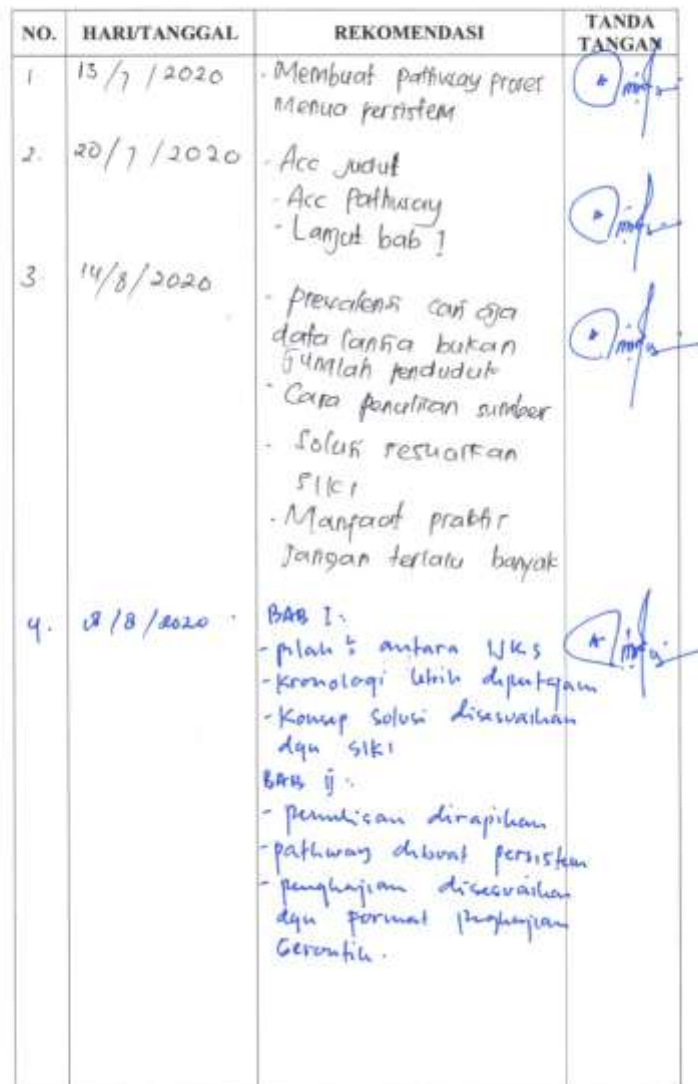 NO. HARI/TANGGAL REKOMENDASI TANDA TANGAN
1 13/7/2020 - Membuat pathway proses
menua persistem
2. 20/7/2020 - Acc judul
- Acc Pathway
- Lanjut bab 1
3 14/8/2020
- prevalensi cari aja
data lansia bukan
jumlah penduduk
- Cara penulisan sumber
- Solusi sesuaikan
SIKI
- Manfaat praktis
Jangan terlalu banyak
4. 8/8/2020 BAB I:
- pilah antara
- kronologi lebih dipertajam
- Konsep solusi disesuaikan
dgn SIKI
BAB ii:
- penulisan dirapihan
- pathway dibuat persistem
- pengkajian disesuaikan
dgn format pengkajian
Gerontik.